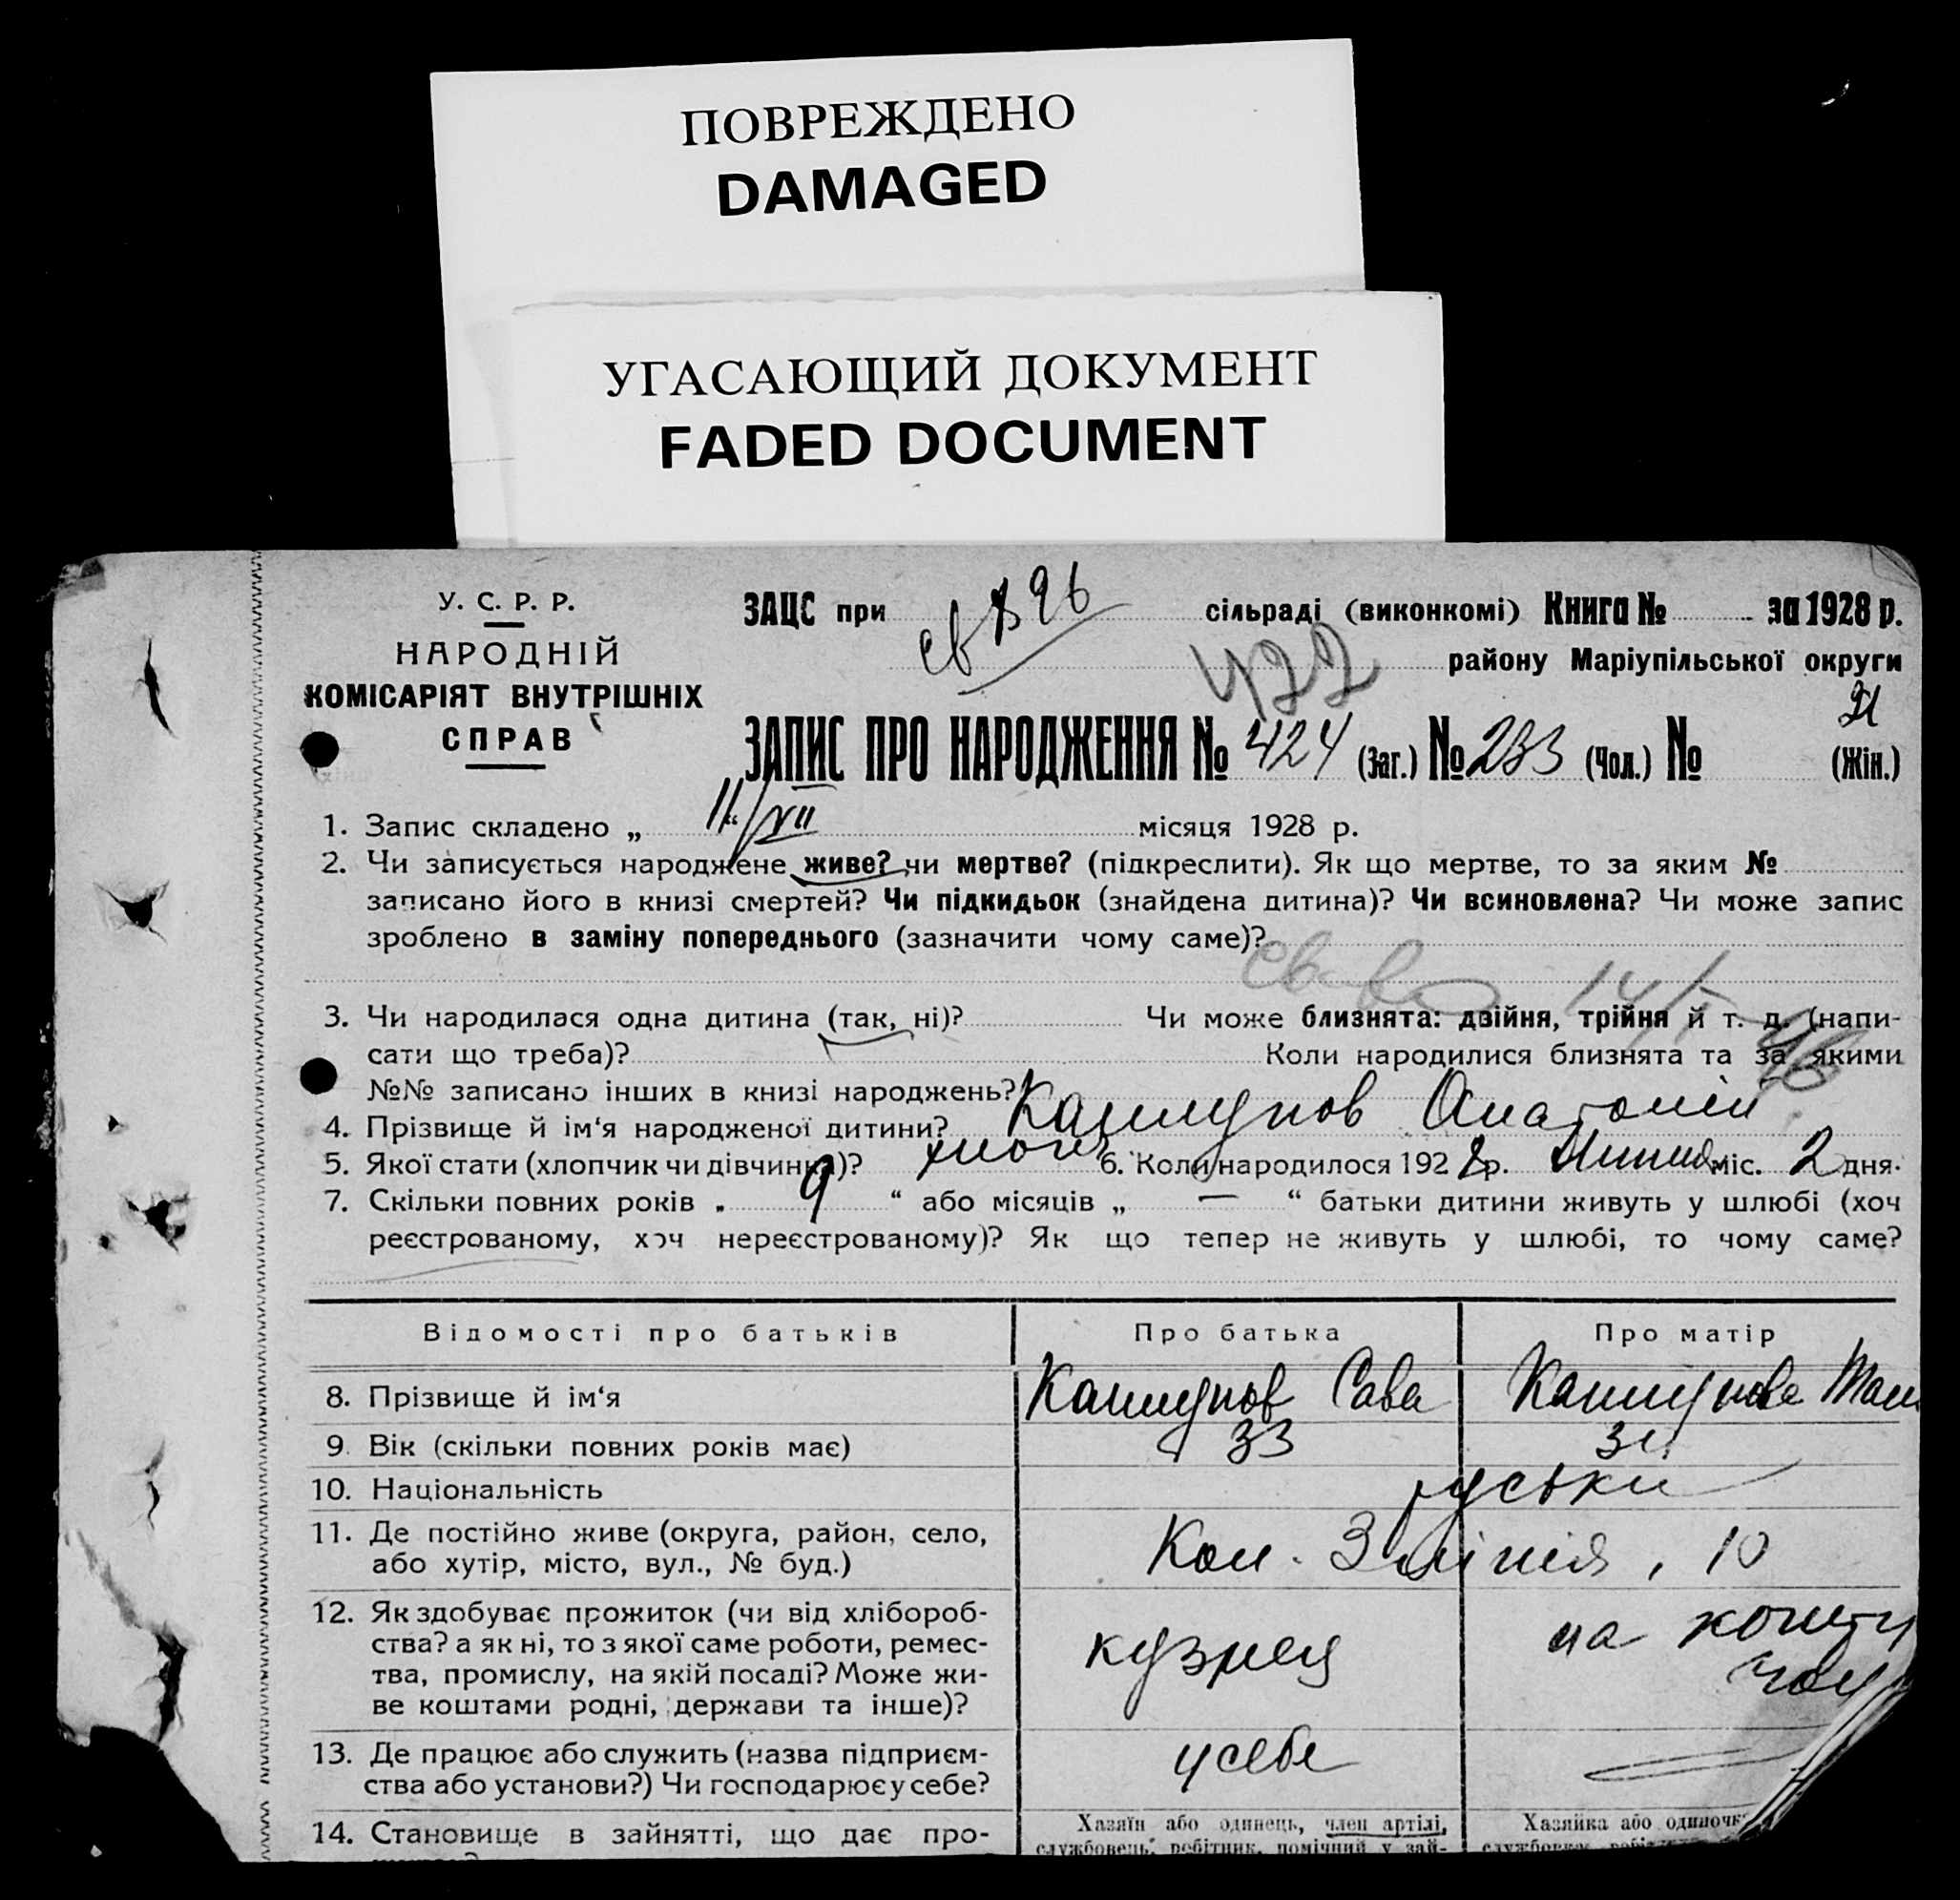 ПОВРЕЖДЕНО
DAMAGED
УГАСАЮЩИЙ ДОКУМЕНТ
FADED DOCUMENT
У. С. Р. Р.
НАРОДНІЙ
КОМІСАРІЯТ ВНУТРІШНІХ
СПРАВ
ЗАЦС при сільраді (виконкомі) Книга № за 1928 р.
422 району Маріупільської округи
ЗАПИС ПРО НАРОДЖЕННЯ № 424 (Заг.) № 233 (Чол.) № (Жін.)
1. Запис складено „ 11/VII “ місяця 1928 р.
2. Чи записується народжене живе? чи мертве? (підкреслити). Як що мертве, то за яким №
записано його в книзі смертей? Чи підкидьок (знайдена дитина)? Чи всиновлена? Чи може запис
зроблено в заміну попереднього (зазначити чому саме)?
3. Чи народилася одна дитина (так, ні)? Чи може близнята: двійня, трійня й т. д. (напи-
сати що треба)? Коли народилися близнята та за якими
№№ записано інших в книзі народжень?
4. Прізвище й ім‘я народженої дитини? Кашунов Анатолій
5. Якої стати (хлопчик чи дівчинка)? 6. Коли народилося 1928 р. міс. 2 дня.
7. Скільки повних років „ 9 “ або місяців „ — “ батьки дитини живуть у шлюбі (хоч
реєстрованому, хоч нереєстрованому)? Як що тепер не живуть у шлюбі, то чому саме?
Відомості про батьків Про батька Про матір
8. Прізвище й ім‘я Кашунов Сава Кашунова
9. Вік (скільки повних років має) 33
10. Національність руські
11. Де постійно живе (округа, район, село,
або хутір, місто, вул., № буд.) Кол. 3 лінія, 10
12. Як здобуває прожиток (чи від хлібороб-
ства? а як ні, то з якої саме роботи, ремес-
тва, промислу, на якій посаді? Може жи-
ве коштами родні, держави та інше)? кузнец на кошту
13. Де працює або служить (назва підприєм-
ства або установи?) Чи господарює у себе? у себе
14. Становище в зайнятті, що дає про-
Хазяїн або одинець, член артілі,
службовець, робітник, помічний у зай-
Хазяйка або одиночк